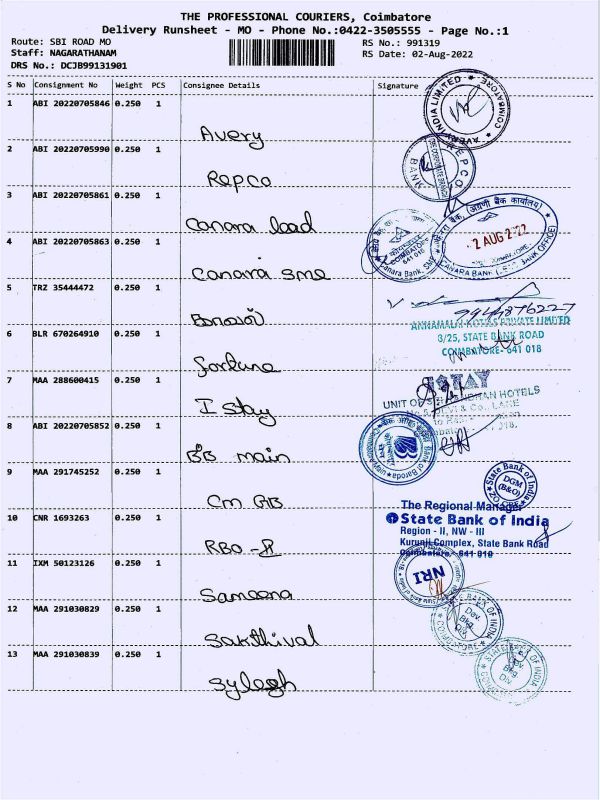 THE PROFESSIONAL COURIERS, Coimbatore
Delivery Runsheet - MO - Phone No.:0422-3505555 - Page No.:1
Route: SBI ROAD MO
Staff: NAGARATHANAM
DRS No.: DCJB99131901
RS No.: 991319
RS Date: 02-Aug-2022
S No Consignment No Weight PCS Consignee Details Signature
1 ABI 20220705846 0.250 1
Avery
AVERY INDIA LIMITED COIMBATORE
2 ABI 20220705990 0.250 1
Repco
REPCO BANK
3 ABI 20220705861 0.250 1
Canara lead
2 AUG 2022
CANARA BANK
4 ABI 20220705863 0.250 1
Canara sme
Canara Bank
COIMBATORE
641 018
5 TRZ 35444472 0.250 1
9944876227
ANNAMALAI HOTELS PRIVATE LIMITED
3/25, STATE BANK ROAD
COIMBATORE- 641 018
6 BLR 670264910 0.250 1
fortune
7 MAA 288600415 0.250 1
I stay
ISTAY
UNIT OF
HOTELS
8 ABI 20220705852 0.250 1
BB main
Bank of Baroda
9 MAA 291745252 0.250 1
Cm
State Bank of India
DGM
(B&O)
10 CNR 1693263 0.250 1
RBO - II
The Regional Manager
State Bank of India
Region - II, NW - III
Kurunji Complex, State Bank Road
Coimbatore. 641 018
11 IXM 50123126 0.250 1
Sameena
NRI
12 MAA 291030829 0.250 1
Sakthival
BANK OF INDIA
COIMBATORE
Dev.
Bkg
Div.
13 MAA 291030839 0.250 1
Sylesh
STATE BANK OF INDIA
Dev.
Bkg
Div.